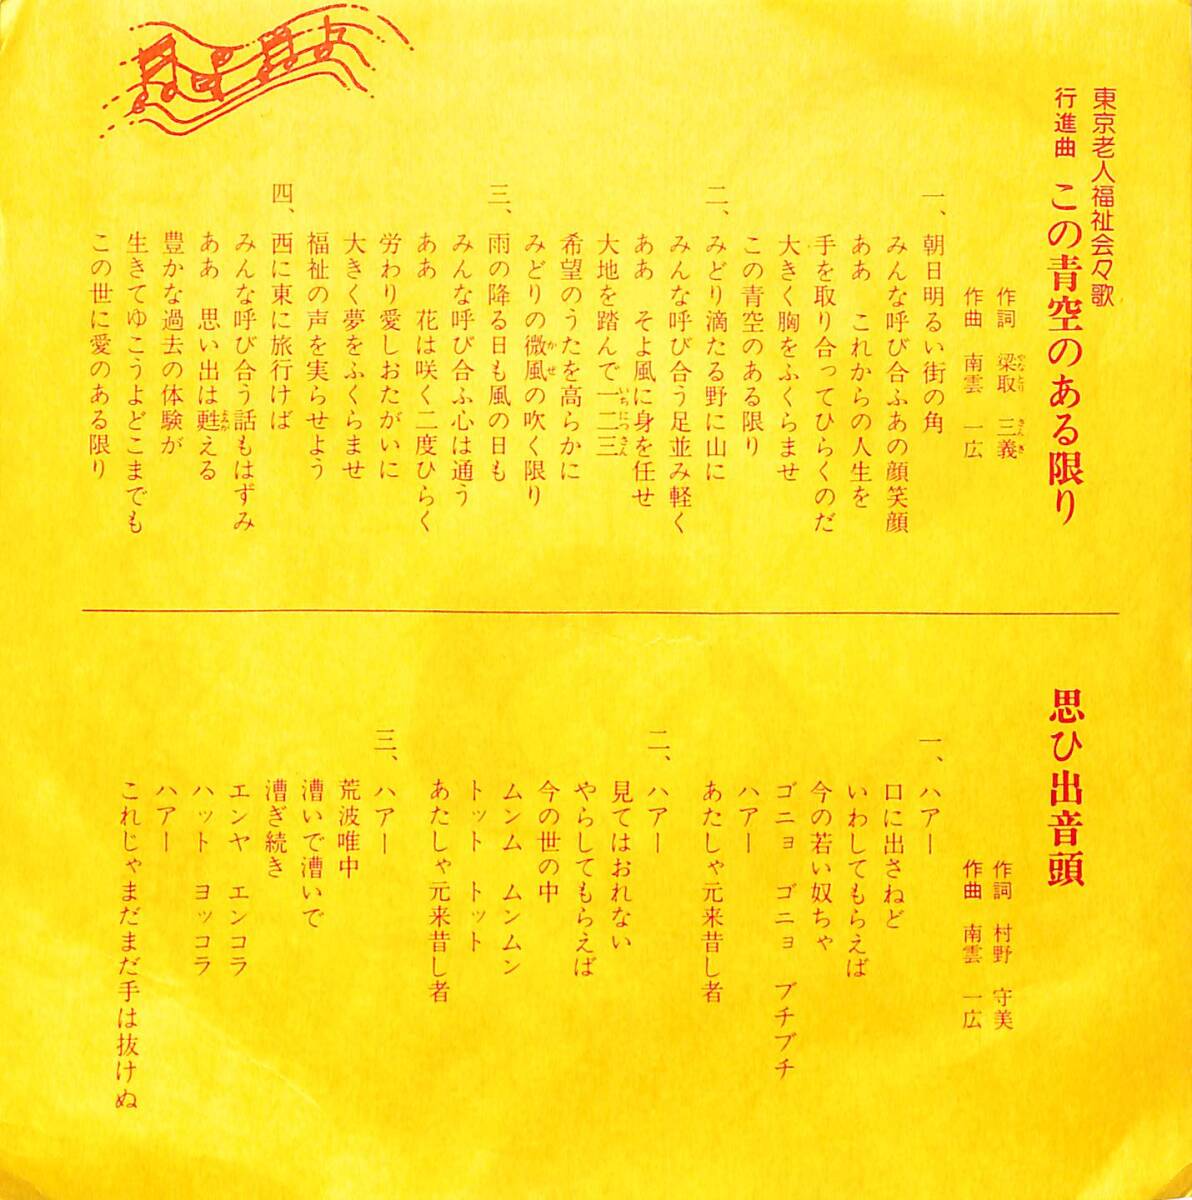 東京老人福祉会々歌
行進曲 この青空のある限り
作詞 梁取 三義
やなとり さんき
作曲 南雲 一広
一、
朝日明るい街の角
みんな呼び合ふあの顔笑顔
ああ これからの人生を
手を取り合ってひらくのだ
大きく胸をふくらませ
この青空のある限り
二、
みどり滴たる野に山に
みんな呼び合う足並み軽く
ああ そよ風に身を任せ
大地を踏んで一二三
いちにっさん
希望のうたを高らかに
みどりの微風の吹く限り
かぜ
三、
雨の降る日も風の日も
みんな呼び合ふ心は通う
ああ 花は咲く二度ひらく
労わり愛しおたがいに
大きく夢をふくらませ
福祉の声を実らせよう
四、
西に東に旅行けば
みんな呼び合う話もはずみ
ああ 思い出は甦える
よみが
豊かな過去の体験が
生きてゆこうよどこまでも
この世に愛のある限り
思ひ出音頭
作詞 村野 守美
作曲 南雲 一広
一、ハアー
口に出さねど
いわしてもらえば
今の若い奴ちゃ
ゴニョ ゴニョ ブチブチ
ハアー
あたしゃ元来昔し者
二、ハアー
見てはおれない
やらしてもらえば
今の世の中
ムンム ムンムン
トット トット
あたしゃ元来昔し者
三、ハアー
荒波唯中
漕いで漕いで
漕ぎ続き
エンヤ エンコラ
ハット ヨッコラ
ハアー
これじゃまだまだ手は抜けぬ